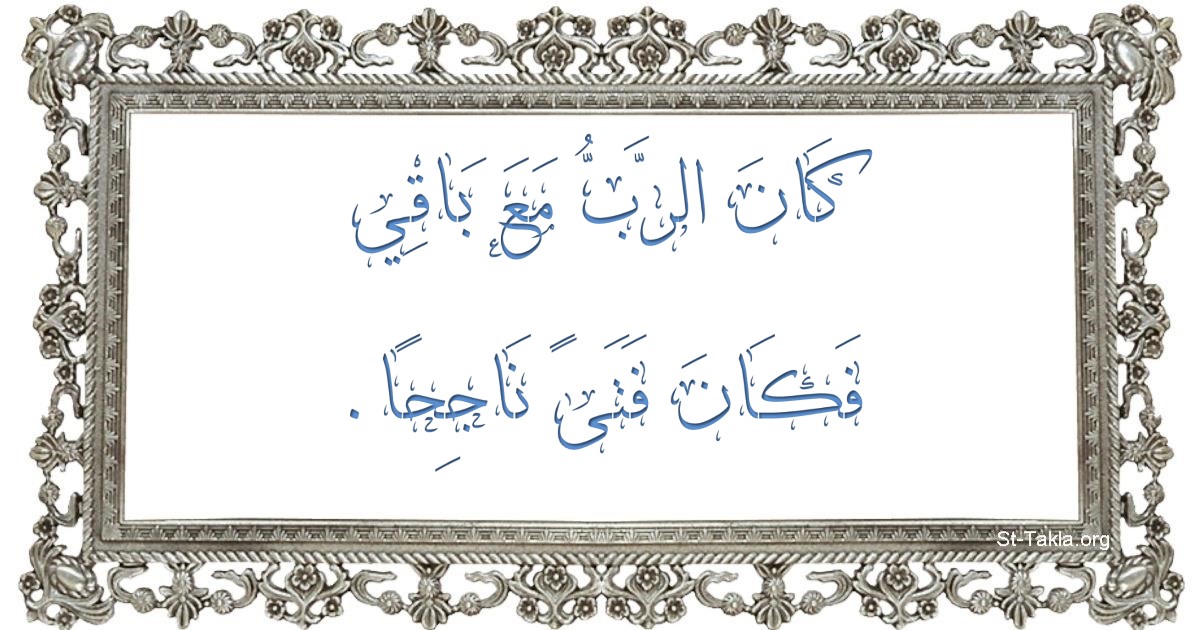 كَانَ الرَّبُّ مَعَ بَاقْيِ
فَكَانَ فَتَىً نَاجِحًا .
St-Takla.org